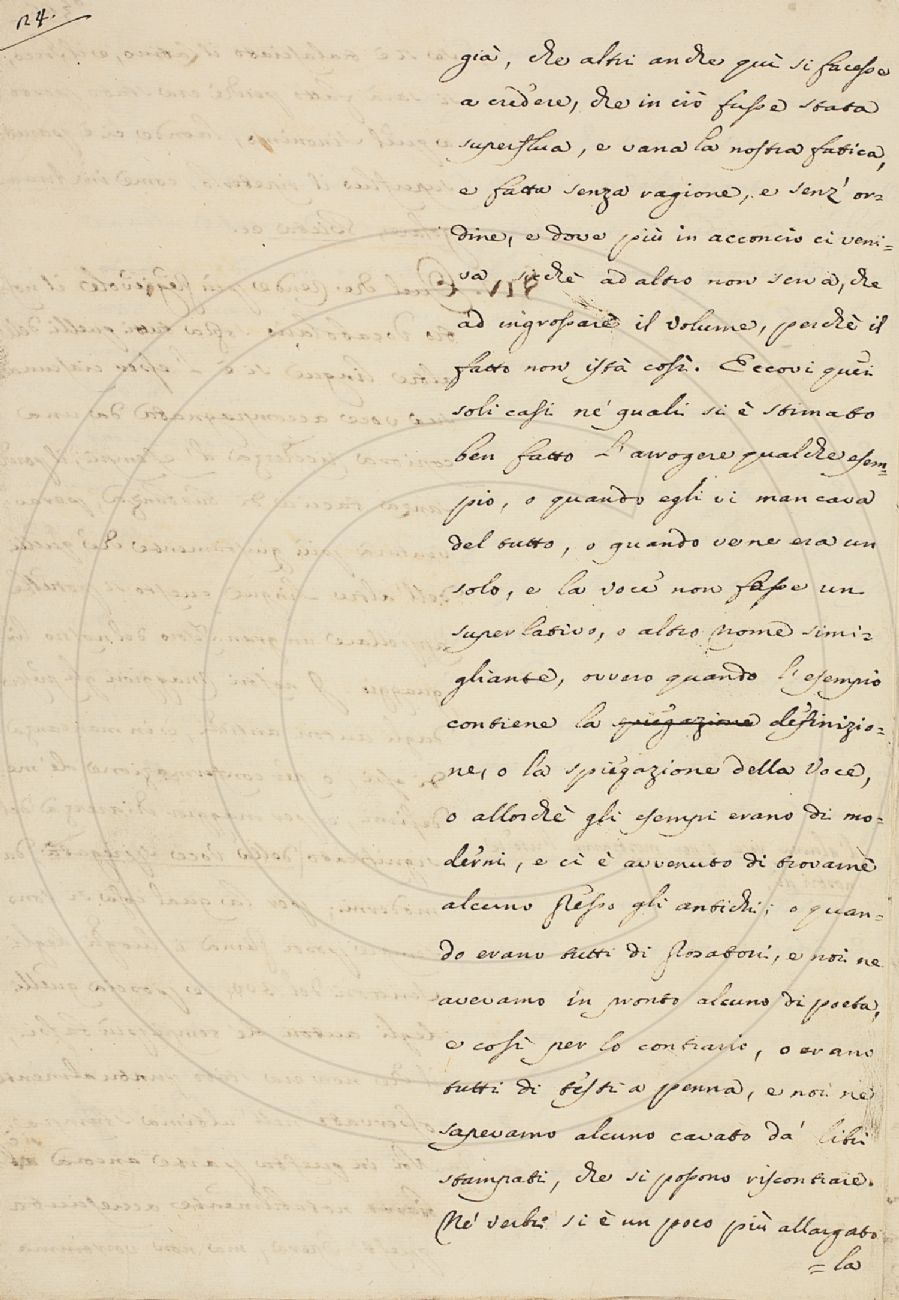 124.
già, che altri anche quì si facesse
a credere, che in ciò fusse stata
superflua, e vana la nostra fatica,
e fatta senza ragione, e senz' or=
dine, e dove più in acconcio ci veni=
va, sicchè ad altro non serva, che
ad ingrossare il volume, perchè il
fatto non istà così. Eccovi quei
soli casi ne' quali si è stimato
ben fatto l' arrogere qualche esem=
pio, o quando egli vi mancava
del tutto, o quando ve ne era un
solo, e la voce non fusse un
superlativo, o altro nome simi=
gliante, ovvero quando l' esempio
contiene la spiegazione definizio=
ne, o la spiegazione della Voce,
o allorchè gli esempi erano di mo=
derni, e ci è avvenuto di trovarne
alcuno presso gli antichi; o quan=
do erano tutti di Prosatori, e noi ne
avevamo in pronto alcuno di poeta,
e così per lo contrario, o erano
tutti di testi a penna, e noi ne
sapevamo alcuno cavato da' libri
stampati, che si possono riscontrare.
Ne' verbi si è un poco più allargato
=la